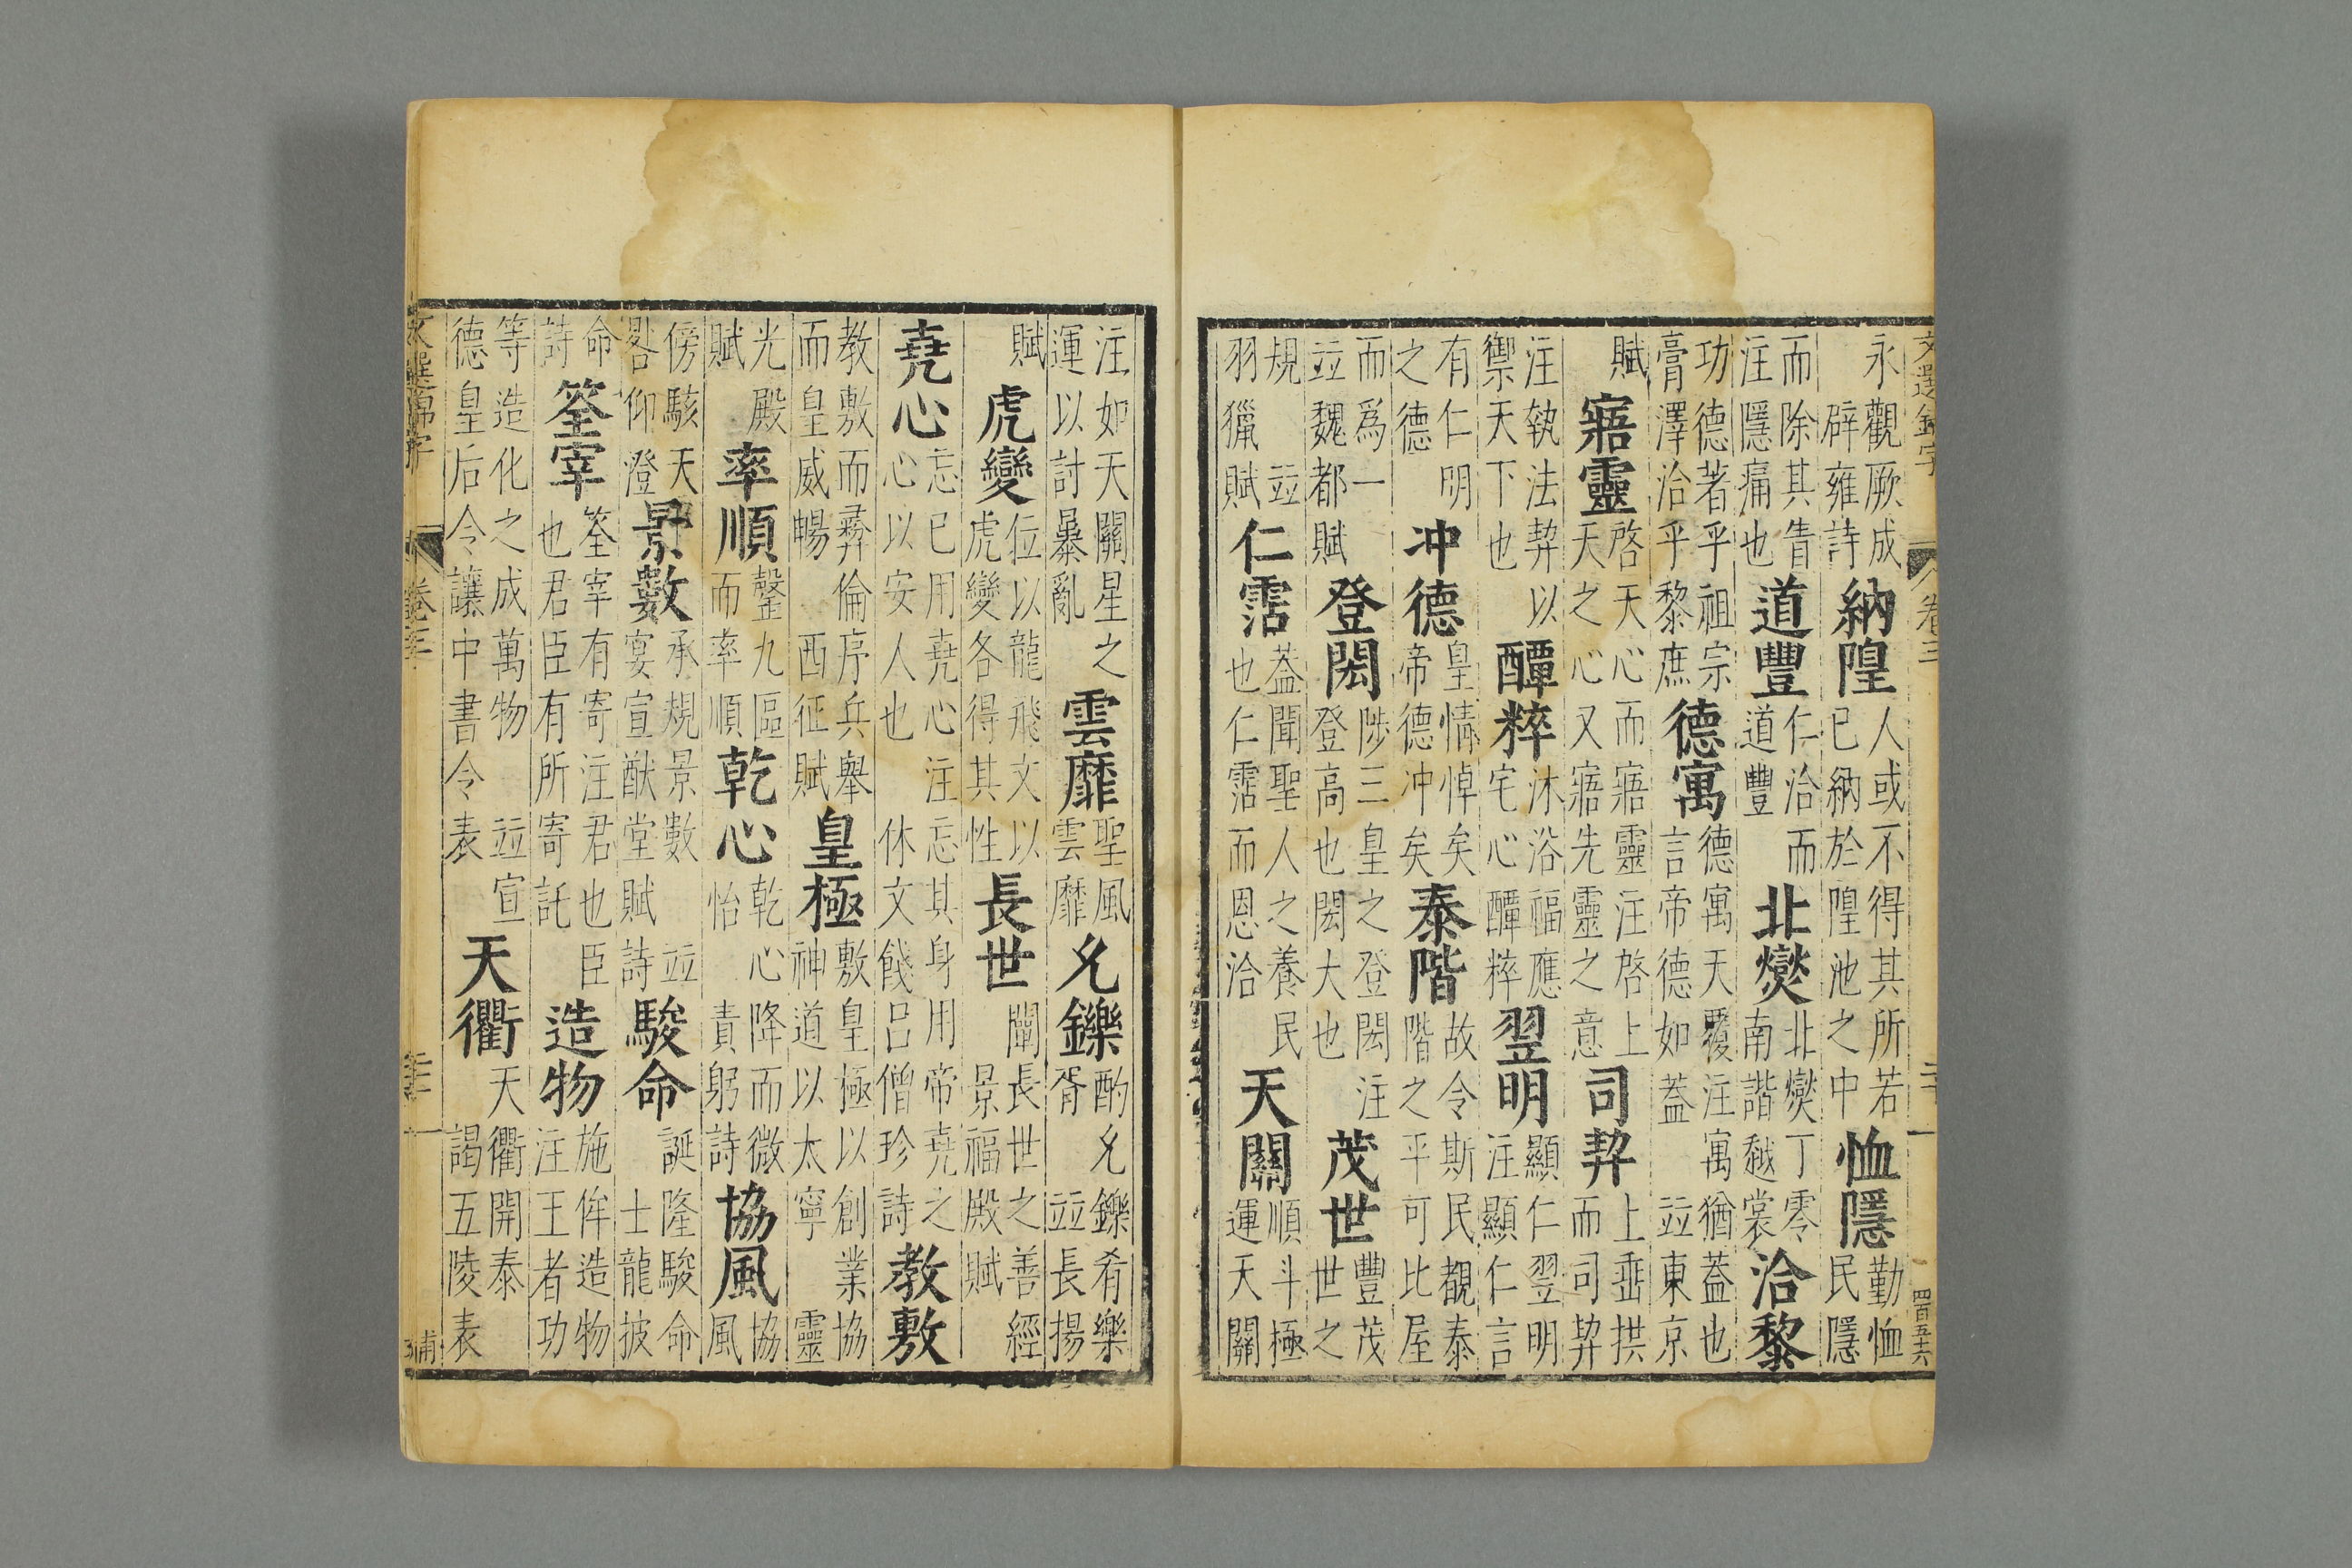 文選錦字 卷三 二十 四百五十六
永觀厥成辟雍詩納隍人或不得其所若已納於隍池之中恤隱勤恤民隱
而除其眚注隱痛也道豐仁洽而道豐北燮北燮丁零南諧越裳洽黎
功德著乎祖宗膏澤洽乎黎庶德寓德寓天覆注寓猶蓋也言帝德如蓋竝東京
賦寤靈啓天心而寤靈注啓上天之心又寤先靈之意司契上垂拱而司契
注執法契以禦天下也醰粹沐浴福應宅心醰粹翌明顯仁翌明注顯仁言
有仁明之德冲德皇情悼矣帝德冲矣泰階故令斯民覩泰階之平可比屋
而爲一竝魏都賦登閎陟三皇之登閎注登高也閎大也茂世豐茂世之
規竝羽獵賦仁霑蓋聞聖人之養民也仁霑而恩洽天關順斗極運天關
注如天關星之運以討暴亂雲靡聖風雲靡允鑠酌允鑠肴樂胥竝長揚
賦虎變位以龍飛文以虎變各得其性長世闡長世之善經景福殿賦
堯心忘已用堯心注忘其身用帝堯之心以安人也休文餞呂僧珍詩教敷
教敷而彝倫序兵舉而皇威暢西征賦皇極敷皇極以創業協神道以太寧靈
光殿賦率順罄九區而率順乾心乾心降而微怡責躬詩協風協風
傍駭天晷仰澄景數承規景數竝宴宣猷堂賦詩駿命誕隆駿命士龍披
命詩筌宰筌宰有寄注君也臣也君臣有所寄託造物施侔造物注王者功
等造化之成萬物竝宣德皇后令讓中書令表天衢天衢開泰謁五陵表
文選錦字 卷三 二十一 補